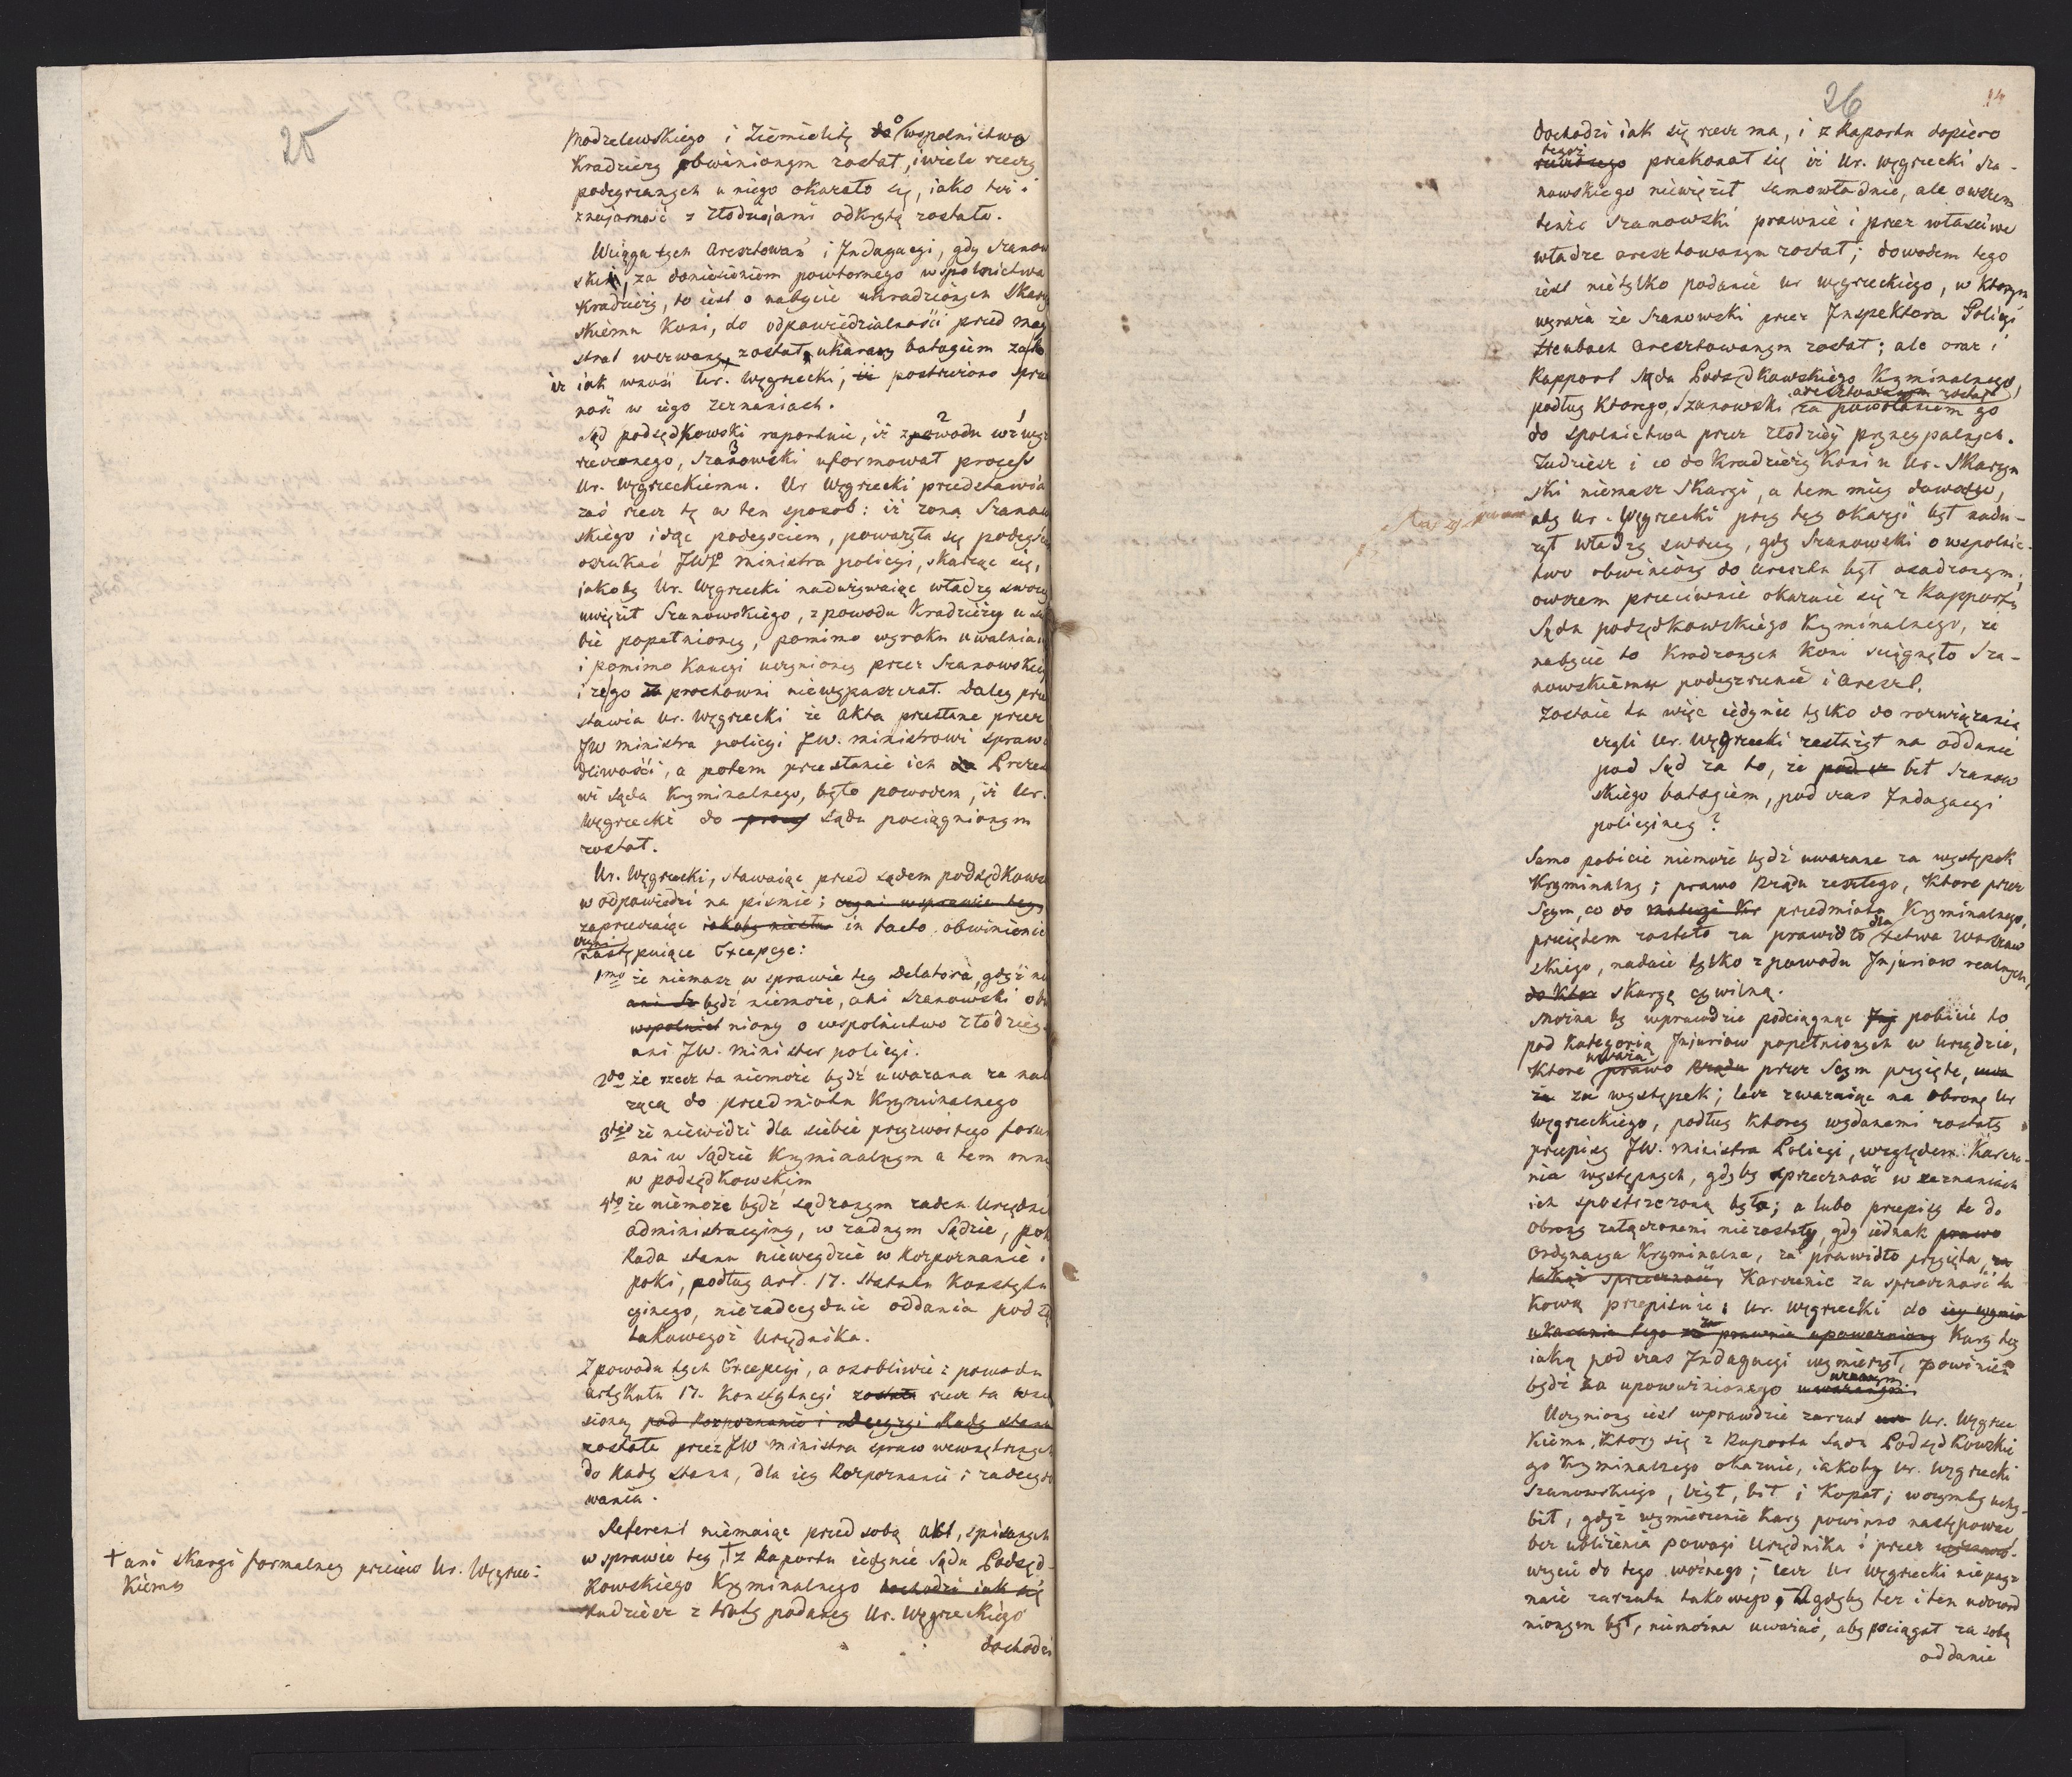 25
Modzelewskiego i Ziemielitę do o wspolnictwo
Kradzieży obwinionym został, i wiele rzeczy
podeyrzanych u niego okazało się, iako też i
znajomość z złodziejami odkrytą została.
Wciągu tych Aresztowań i Indagacyi, gdy Szanow
skin, za doniesieniem powtornego wspolnictwa
Kradzieży, to iest o nabycie ukradzionych Skarzyn
skiemu Koni, do odpowiedzialności przed mag
strat wezwany, został ukarany batogiem za to
iż iak wnosi Ur. Węgrzecki, iż postrzeżono sprze
ność w iego zeznaniach.
Sąd podsędkowski raportuie, iż z powodu wzwyż
rzeczonego, Szanowski uformował process
Ur. Węgrzeckiemu. Ur Węgrzecki przedstawia
zaś rzecz tę w ten sposob: iż żona Szanow
skiego idąc podeyściem, poważyła się podeyść i
oszukać JWo ministra policyi, skarżąc się,
jakoby Ur. Węgrzecki nadużywaiąc władzy swoiey
uwięził Szanowskiego, z powodu Kradzieży u sie
bie popełnioney, pomimo wyroku uwalniai
i pomimo Kaucyi uczynioney przez Szanowskiey
i żego z prochowni niewypaszczał. Daley prze
stawia Ur. Węgrzecki że akta przesłane przez
JW ministra policyi JW. ministrowi sprawie
dliwości, a potem przesłanie ich do Prezes
wi sądu Kryminalnego, było powodem, iż Ur.
Węgrzecki do pracy sądu pociągnionym
został.
Ur. Węgrzecki, stawaiąc przed sądem podsędkows
w odpowiedzi na pismie; czyni w sprawie tey
zaprzeczaiąc iakoby niesłu in facto obwinienie
czyni
następuiące Excepcye:
1mo że niemasz w sprawie tey Delatora, gdyż ni
ani Sz bydź niemoże, ani Szanowski ob
wspolniet niony o wspolnictwo złodziey
ani JW. minister policyi.
2do że rzecz ta niemoże bydź uważana za nal
żącą do przedmiotu Kryminalnego
3tio że niewidzi dla siebie przyzwoitego forum
ani w Sądzie Kryminalnym a tem mni
w podsędkowskim
4to że niemoże bydź sądzonym żaden Urzędni
administracyiny, w żadnym Sądzie, pok
Rada stanu nieweydzie w Rozpoznanie i
poki, podług art. 17. Statutu Konstytu
cyinego, niezadecyduie oddania pod Są
takowegoż Urzędnika.
Z powodu tych Excepcyi, a osobliwie z powodu
artykułu 17. Konstytucyi została rzecz ta wnie
sioną pod Rozpoznanie i decyzyi Rady stanu
została przez JW ministra spraw wewnętrznych
do Rady stanu, dla iey Rozpoznanie i zadecydo
wania.
Referent niemaiąc przed sobą akt, spisanych
w sprawie tey, † z Raportu iedynie Sądu Podsęd-
kowskiego Kryminalnego dochodzi iak się
tudzież z noty podaney Ur. Węgrzeckiego
dochodzi
† ani skargi formalney przeciw Ur. Węgrzec-
kiemu
26
14
dochodzi iak się rzecz ma, i z Raportu dopiero
tegoż
rzeczonego przekonał się iż Ur. Węgrzecki Sza-
nowskiego niewięził samowładnie, ale owszem
tenże Szanowski prawnie i przez właściwe
władze aresztowanym został; dowodem tego
iest nietylko podanie Ur Węgrzeckiego, w którym
wyraża że Szanowski przez Inspektora Policyi
Steubach aresztowanym został; ale oraz i
Rapport Sądu Podsędkowskiego Kryminalnego,
aresztowanym został
podług którego, Szanowski za powołaniem go
do spolnictwa przez złodziey pryncypalnych.
Tudzież i co do Kradzieży Koni u Ur. Skarzyn
ski niemasz Skargi, a tem miey dowodu,
aby Ur. Węgrzecki przy tey okazyi był nadu-
żył władzy swoiey, gdy Szanowski o wspolnic-
two obwiniony do aresztu był osadzonym;
owszem przeciwnie okazuie się z Rapportu
Sądu podsędkowskiego Kryminalnego, że
nabycie to Kradzonych Koni sciągnęło Sza-
nowskiemu podeyrzenie i areszt.
Zostaie tu więc iedynie tylko do rozwiązania
czyli Ur. Węgrzecki zasłużył na oddanie
pod Sąd za to, że pod cz bił Szanow
skiego batogiem, pod czas Indagacyi
policyiney?
Samo pobicie niemoże bydź uważane za występek
Kryminalny; prawo Rządu zeszłego, które przez
Seym, co do materyi Kr przedmiotu Kryminalnego,
przyiętem zostało za prawidło dla Xiestwa Warszaw
skiego, nadaie tylko z powodu Injuriow realnych,
do Ktor skargę cywilną.
Można by wprawdzie podciągnąc Inj pobicie to
pod Kategorią Injuriow popełnionych w Urzędzie,
uważa
które prawo Rządu przez Seym przyięte, uwa
ża za występek; lecz zważaiąc na obronę Ur
Węgrzeckiego, podług którey wydanemi zostały
przepisy JW. ministra Policyi, względem Karce-
nia występnych, gdyby sprzeczność w zeznaniach
ich spostrzeżoną była; a lubo przepisy te do
obrony załączonemi niezostały, gdy iednak prawo
Ordynacya Kryminalna, za prawidło przyięta, za
takąż sprzeczność, Karcenie za sprzeczność ta
kową przepisuie; Ur. Węgrzecki do iey wymia
ukarania tego za prawnie upoważniony Kary tey
iaką pod czas Indagacyi wymierzył, powinien
uznanym
bydź za upoważnionego uważanym.
Uczyniony iest wprawdzie zarzut Ur. Węgrzec
kiemu, ktory się z Raportu Sądu Podsędkowskie
go Kryminalnego okazuie, iakoby Ur. Węgrzecki
Szanowskiego, lżył, bił i Kopał; w czymby uchy
bił, gdyż wymierzenie Kary powinno następować
bez ubliżenia powagi Urzędnika i przez
użycie do tego woźnego; lecz Ur Węgrzecki niepozy
naie zarzutu takowego, A gdyby też i ten udowod
nionym był, niemożna uważać, aby pociągał za sobą
oddanie